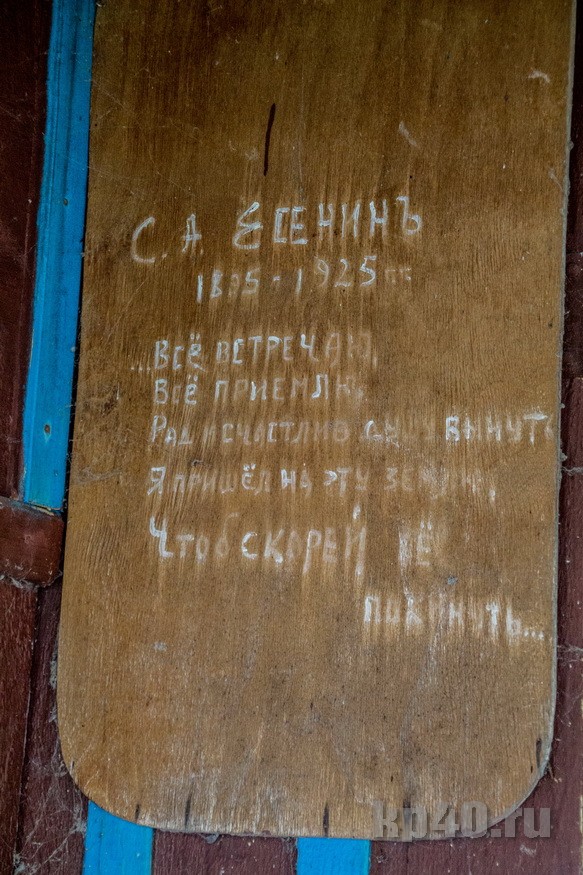 С. А. ЕСЕНИНЪ
1895-1925 гг
...ВСЁ ВСТРЕЧАЮ,
ВСЁ ПРИЕМЛЮ,
РАД И СЧАСТЛИВ ДУШУ ВЫНУТЬ
Я ПРИШЁЛ НА ЭТУ ЗЕМЛЮ,
ЧТОБ СКОРЕЙ ЕЁ
ПОКИНУТЬ...
kp40.ru